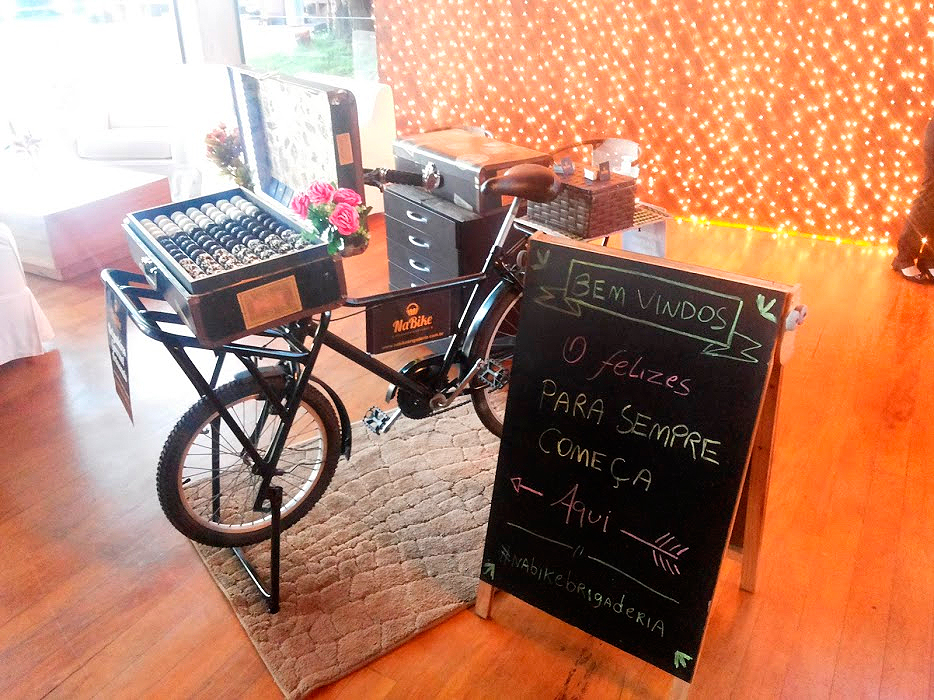 NaBike
BEM VINDOS
O felizes
PARA SEMPRE
COMEÇA
Aqui
#NABikEBRIGADERIA